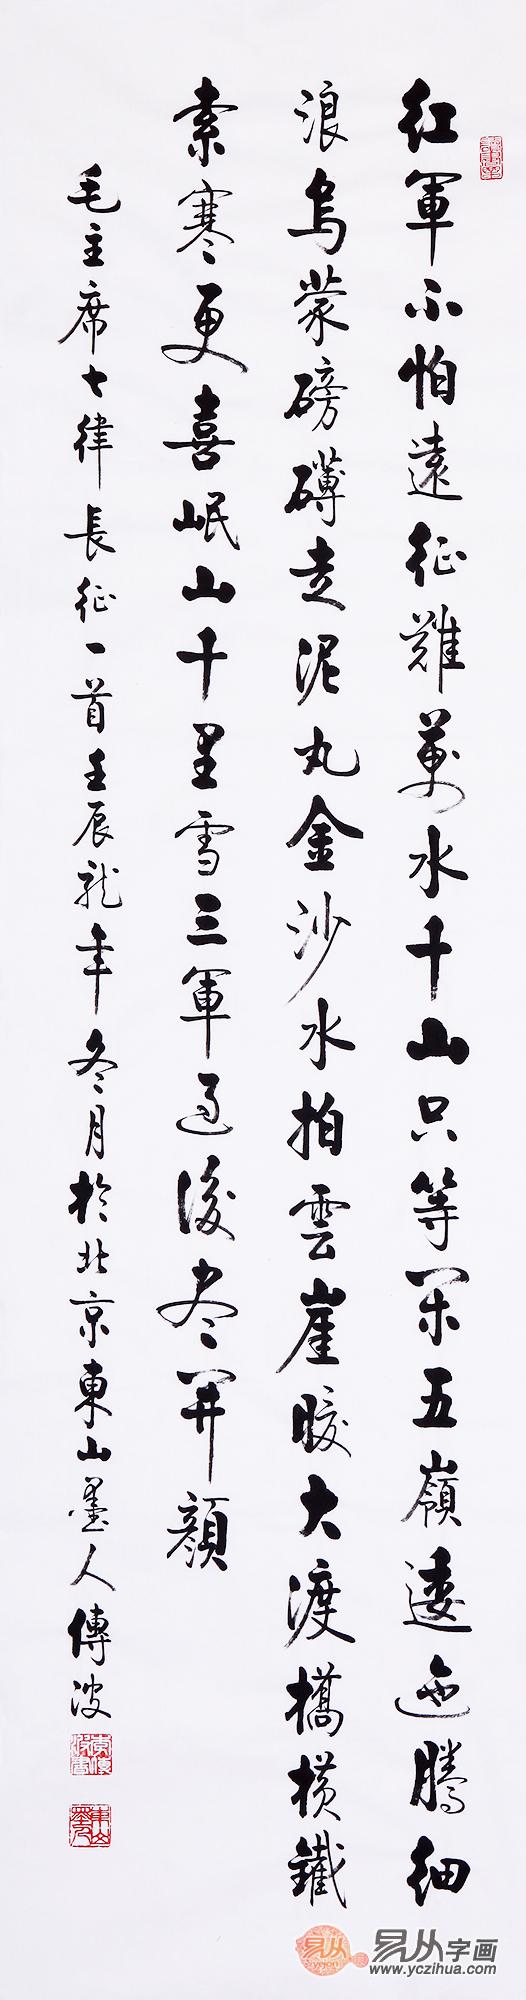 紅軍不怕遠征難萬水千山只等闲五嶺逶迤騰細
浪烏蒙磅礴走泥丸金沙水拍雲崖暖大渡橋横鐵
索寒更喜岷山千里雪三軍过後尽開顔
毛主席七律長征一首壬辰龍年冬月於北京東山墨人傳波
易从
yejon
易从字画
www.yczihua.com